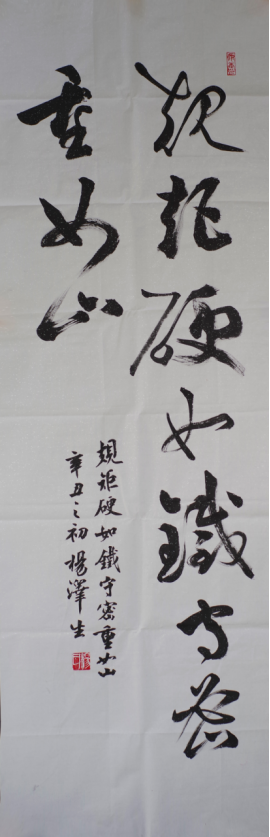 規矩硬如鐵守密
重如山
規矩硬如鐵守密重如山
辛丑之初楊澤生